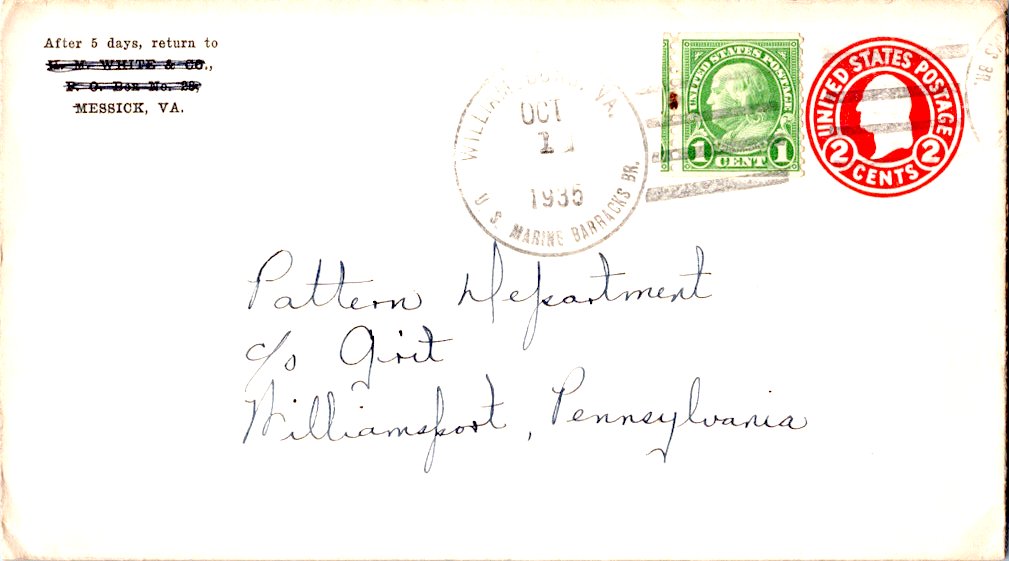 After 5 days, return to
H. M. WHITE & CO.,
P. O. Box No. 28,
MESSICK, VA.
VA.
OCT
1
1935
U. S. MARINE BARRACKS BR.
UNITED STATES POSTAGE
1 CENT 1
UNITED STATES POSTAGE
2 CENTS 2
BR.
Pattern Department
c/o Grit
Williamsport, Pennsylvania